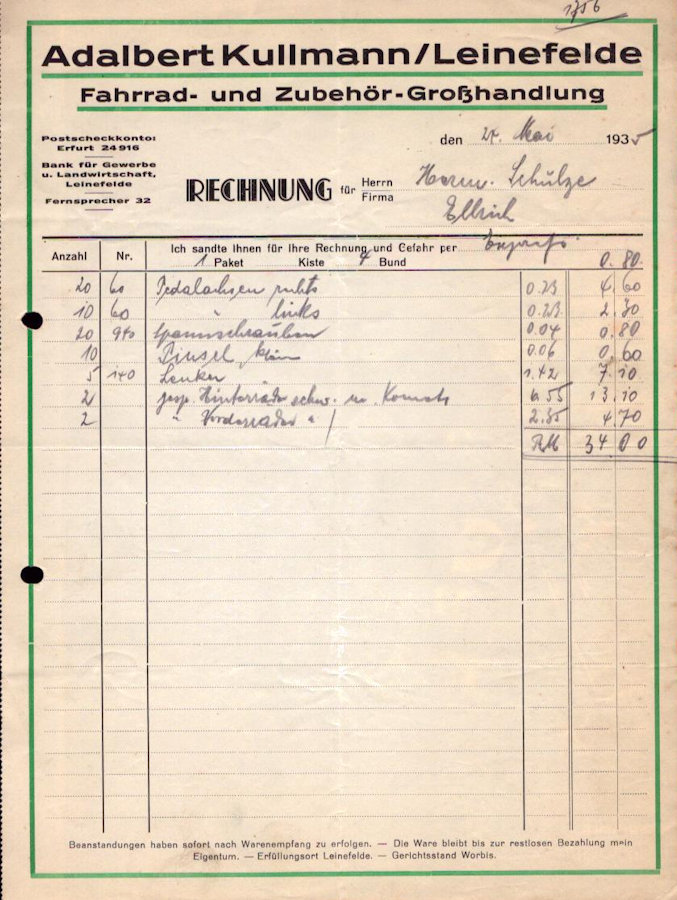 1756
Adalbert Kullmann/Leinefelde
Fahrrad- und Zubehör-Großhandlung
Postscheckkonto:
Erfurt 24916
Bank für Gewerbe
u. Landwirtschaft,
Leinefelde
Fernsprecher 32
den 24. Mai 1935
RECHNUNG für Herrn Firma
Herrn. Schulze
Ellrich
Anzahl Nr. Ich sandte Ihnen für Ihre Rechnung und Gefahr per
1 Paket Kiste 4 Bund 0.80
20 60 Pedalachsen rechts 0.23 4.60
10 60 " links 0.23 2.30
20 940 Spannschrauben 0.04 0.80
10 Pinsel klein 0.06 0.60
5 140 Lenker 1.42 7.10
2 gesp. Hinterräder schw. m. Komet 6.55 13.10
2 " Vorderräder " 2.35 4.70
RM 34 00
Beanstandungen haben sofort nach Warenempfang zu erfolgen. — Die Ware bleibt bis zur restlosen Bezahlung mein
Eigentum. — Erfüllungsort Leinefelde. — Gerichtsstand Worbis.